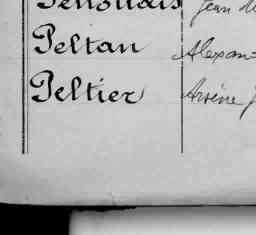 Jean
Peltan Alexan
Peltier Arsène J